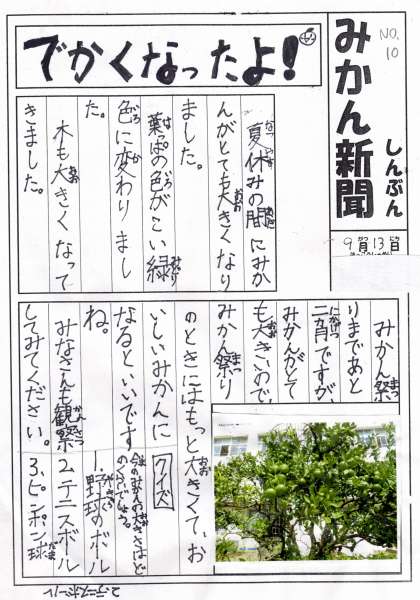 NO.10
みかん新聞
しんぶん
9月13日
でかくなったよ!
夏休みの間にみか
んがとても大きくなり
ました。
葉っぱの色がこい緑
色に変わりまし
た。
木も大きくなって
きました。
みかん祭
りまであと
二カ月ですが
みかんがとて
も大きいので、
みかん祭り
のときにはもっと大きくて、お
いしいみかんに
なるといいです
ね。
みなさんも観察
してみてください。
クイズ
今のみかんの大きさはど
のくらいでしょう。
1.野球のボール
2.テニスボール
3.ピンポン球
2.テニスボール